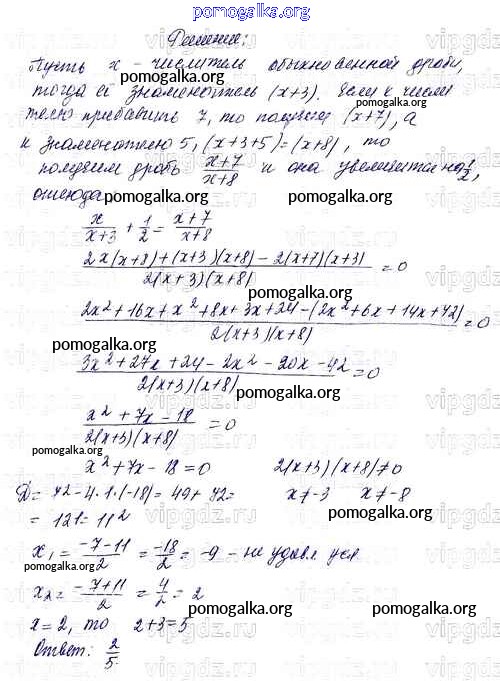 pomogalka.org
Решение:
Пусть x - числитель обыкновенной дроби,
pomogalka.org
тогда её знаменатель (x+3). Если к числи
телю прибавить 7, то получим (x+7), а
pomogalka.org
к знаменателю 5, (x+3+5)=(x+8), то
получим дробь x+7/x+8 и она увеличится на 1/2,
pomogalka.org
отсюда
pomogalka.org
x/x+3 + 1/2 = x+7/x+8
2x(x+8)+(x+3)(x+8)-2(x+7)(x+3)/2(x+3)(x+8) = 0
pomogalka.org
2x²+16x+x²+8x+3x+24-(2x²+6x+14x+42)/2(x+3)(x+8) = 0
pomogalka.org
3x²+27x+24-2x²-20x-42/2(x+3)(x+8) = 0
pomogalka.org
x²+7x-18/2(x+3)(x+8) = 0
pomogalka.org
x²+7x-18=0 2(x+3)(x+8)≠0
Д= 7²-4·1·(-18)=49+72= x≠-3 x≠-8
= 121=11²
pomogalka.org
x₁= -7-11/2 = -18/2 = -9 - не удовл. усл
pomogalka.org
x₂= -7+11/2 = 4/2 = 2
pomogalka.org pomogalka.org
x=2, то 2+3=5
Ответ: 2/5.
pomogalka.org
vipgdz.ru